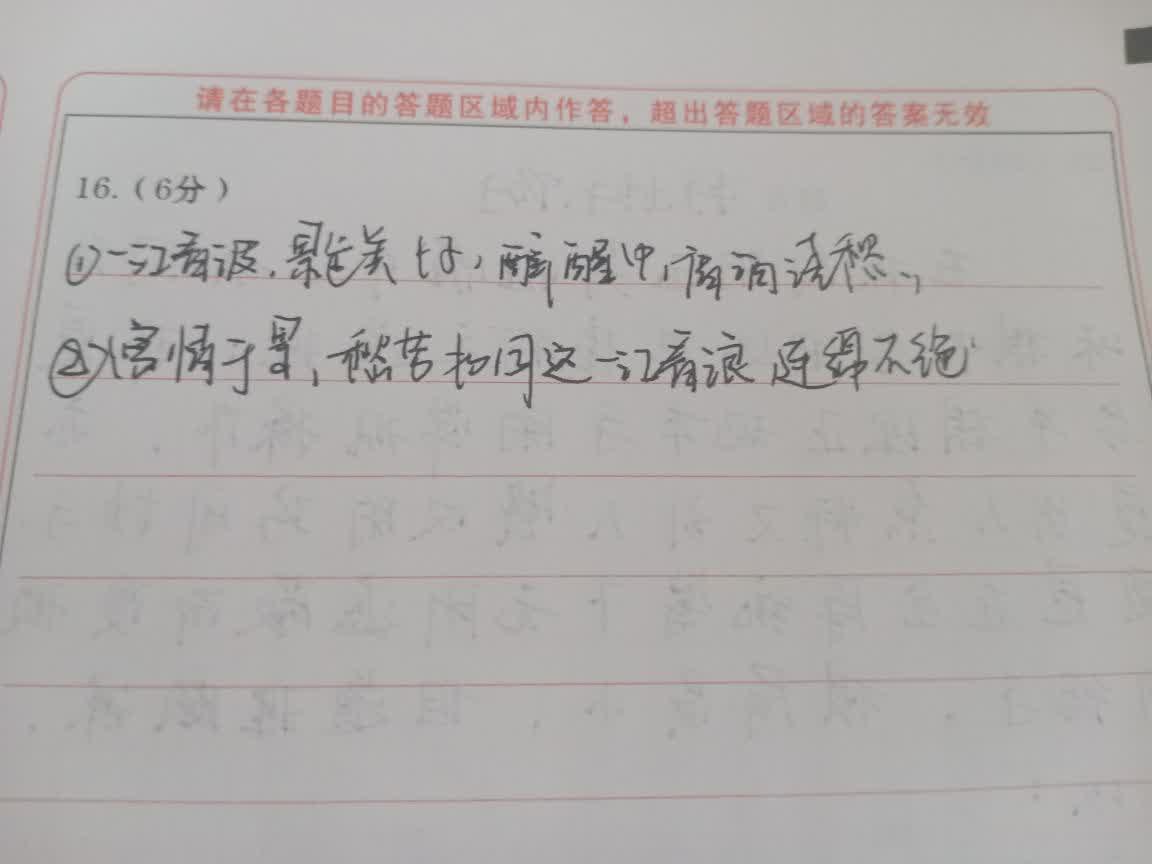 请在各题目的答题区域内作答，超出答题区域的答案无效
16.（6分）
①一江春波，景色美好，醉醒中，情清愁，
②借情于景，愁苦如同这一江春浪连绵不绝